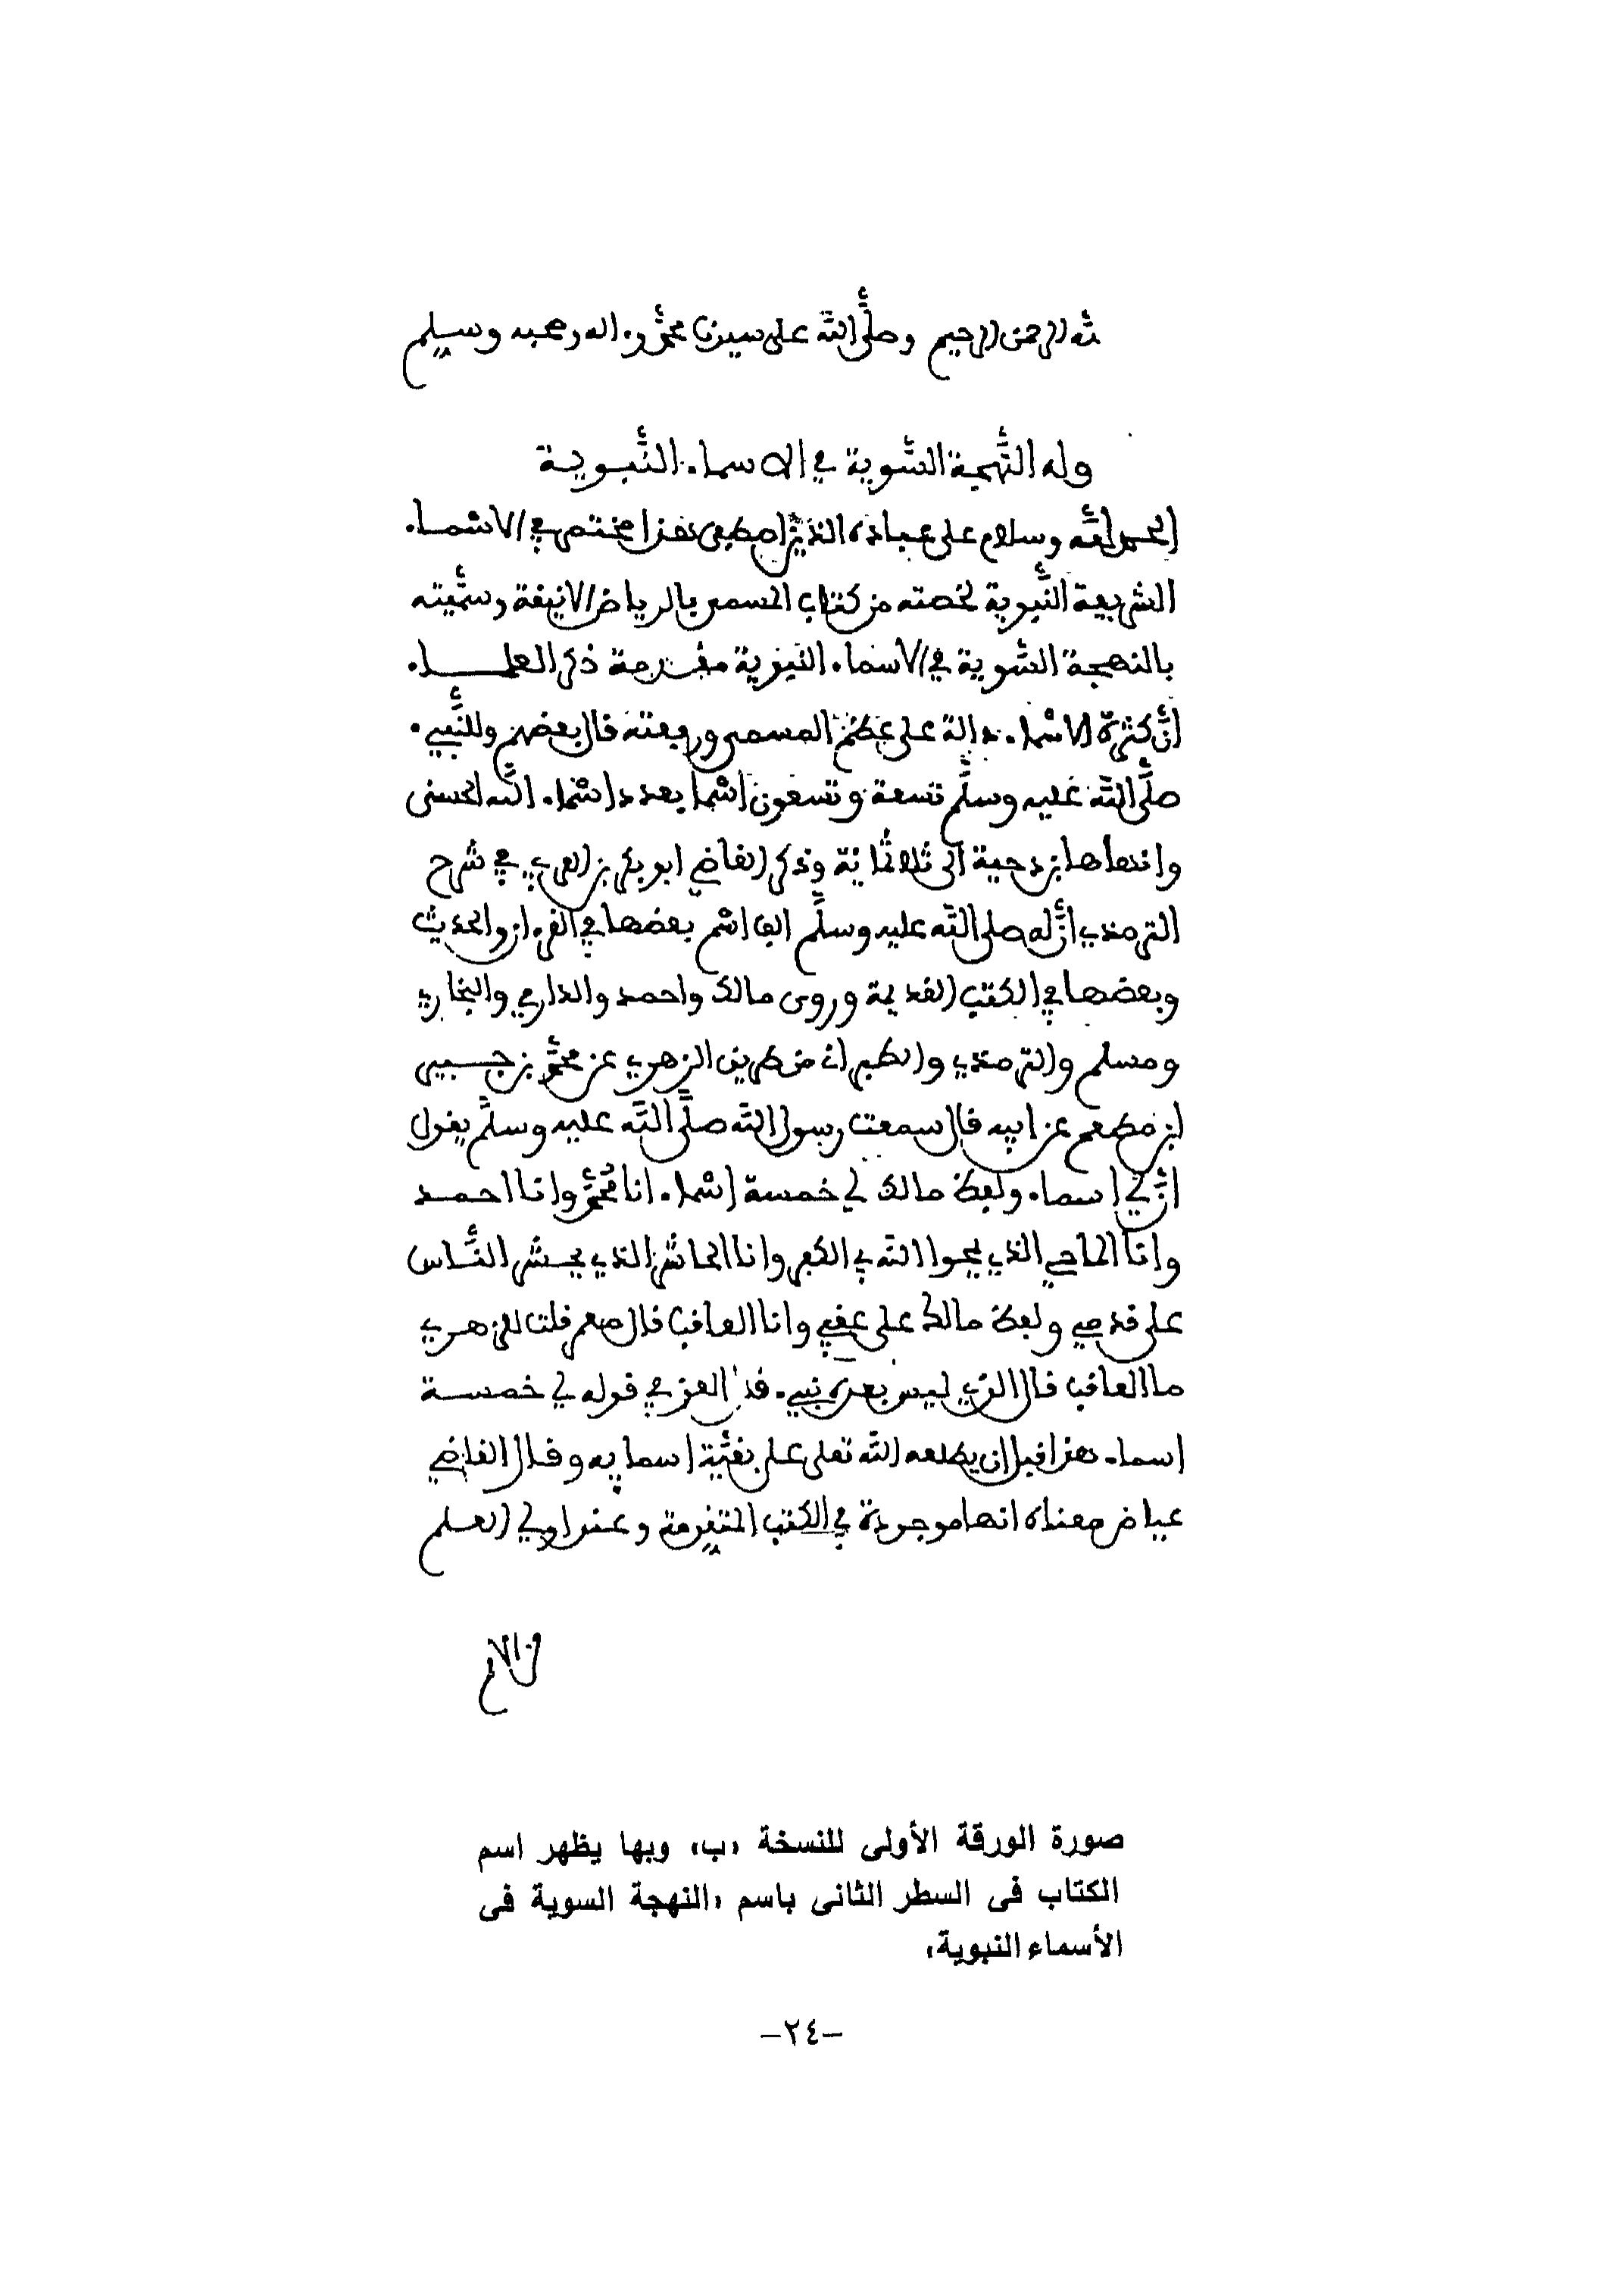 لله الرحمن الرحيم وصلى الله على سيدنا محمد واله وصحبه وسلم
وله النهجة السوية في الاسماء النبوية
الحمد لله وسلام على عباده الذين اصطفى هذا مختصر في الاسماء
الشريفة النبوية لخصته من كتاب المسمى بالرياض الانيفة وسميته
بالنهجة السوية في الاسماء النبوية مقدمة ذكر العلماء
أن كثرة الاسماء دالة على عظم المسمى ورفعته قال بعضهم وللنبي
صلى الله عليه وسلم تسعة وتسعون اسما بعدد اسماء الله الحسنى
وانهاها بن دحية الى ثلاثمائة وذكر القاضي ابو بكر بن العربي في شرح
الترمذي أن له صلى الله عليه وسلم الف اسم بعضها في القرءان والحديث
وبعضها في الكتب القديمة وروى مالك واحمد والدارمي والبخاري
ومسلم والترمذي والطبراني من طريق الزهري عن محمد بن جبير
ابن مطعم عن ابيه قال سمعت رسول الله صلى الله عليه وسلم يقول
ان لي اسماء ولفظ مالك لي خمسة اسماء انا محمد وانا احمد
وانا الماحي الذي يمحوا الله بي الكفر وانا الحاشر الذي يحشر الناس
على قدمي ولفظ مالك على عقبي وانا العاقب قال معمر قلت للزهري
ما العاقب قال الذي ليس بعده نبي قال العزفي قوله لي خمسة
اسماء هذا قبل ان يطلعه الله تعلى على بقية اسمايه وقال القاضي
عياض معناه انها موجودة في الكتب المتقدمة وعند اولي العلم
من الامم
صورة الورقة الأولى للنسخة «ب» وبها يظهر اسم
الكتاب فى السطر الثانى باسم «النهجة السوية فى
الأسماء النبوية»
–٢٤–